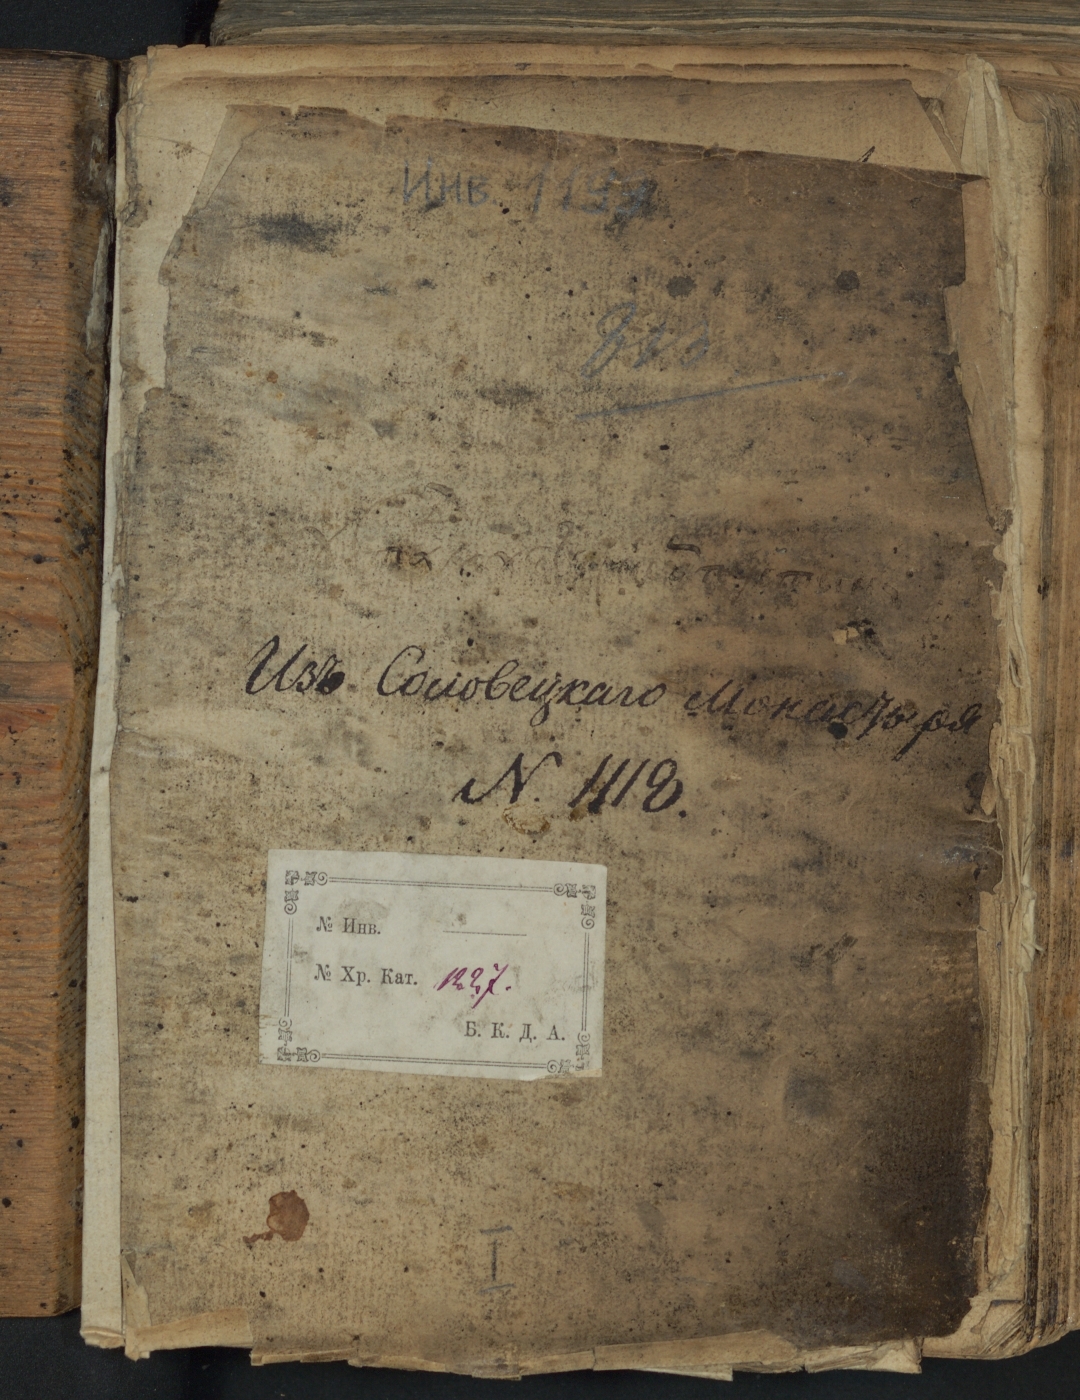 Инв. 1137
Изъ Соловецкаго Монастыря
N. 1118.
№ Инв.
№ Хр. Кат. 1227.
Б. К. Д. А.
I